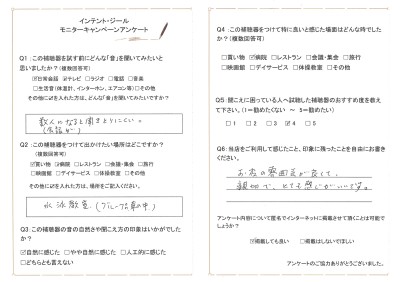 インテント・ジール
モニターキャンペーンアンケート
Q1:この補聴器を試す前にどんな「音」を聞いてみたいと
思いましたか?(複数回答可)
☑日常会話 ☑テレビ □ラジオ □電話 □音楽
□生活音(体温計、インターホン、エアコン等)□その他
その他に☑を入れた方は、どんな「音」を聞いてみたいですか?
数人になると聞きとりにくい。
(会話が)
Q2:この補聴器をつけて出かけたい場所はどこですか?
(複数回答可)
☑買い物 ☑病院 □レストラン □会議・集会 □旅行
□映画館 □デイサービス □体操教室 □その他
その他に☑を入れた方は、場所をご記入ください。
水泳教室。(グループ仕事中)
Q3:この補聴器の音の自然さや聞こえ方の印象はいかがでした
か?
☑自然に感じた □やや自然に感じた □人工的に感じた
□どちらとも言えない
Q4:この補聴器をつけて特に良いと感じた場面はどんな時でした
か?(複数回答可)
□買い物 ☑病院 □レストラン □会議・集会 □旅行
□映画館 □デイサービス □体操教室 □その他
Q5:聞こえに困っている人へ試聴した補聴器のおすすめ度を教え
て下さい。(1=勧めたくない ~ 5=勧めたい)
□1 □2 □3 ☑4 □5
Q6:当店をご利用して感じたこと、印象に残ったことを自由にお書
きください。
お店の雰囲気が良くて、
親切で、とても感じがいいです。
アンケート内容について匿名でインターネットに掲載させて頂くことは可能で
しょうか?
☑掲載しても良い □掲載はしないでほしい
アンケートのご協力ありがとうございました。